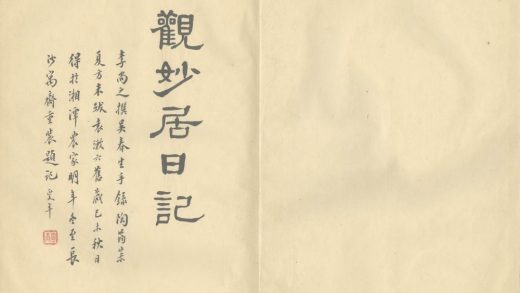 觀妙居日記
李尚之撰吳春生手錄陶筠崇
夏方米跋袁漱六舊藏己未秋日
得於湘潭農家明年冬至長
沙葉齊重裝題記